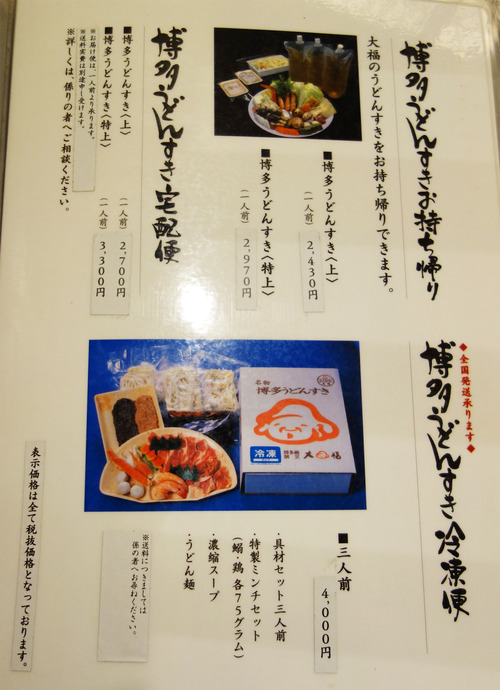 博多うどんすきお持ち帰り
大福のうどんすきをお持ち帰りできます。
■博多うどんすき〈上〉
(一人前) 2,430円
■博多うどんすき〈特上〉
(一人前) 2,970円
博多うどんすき宅配便
■博多うどんすき〈特上〉
(一人前) 3,300円
■博多うどんすき〈上〉
(一人前) 2,700円
※お届け便は、一人前より承ります。
※送料実費は別途申し受けます。
※詳しくは、係りの者へご相談ください。
◆全国発送承ります◆
博多うどんすき冷凍便
名物
博多うどんすき
冷凍
大福
■三人前
4,000円
・具材セット三人前
・特製ミンチセット
(鰯・鶏 各75グラム)
・濃縮スープ
・うどん麺
※送料につきましては
係の者へお尋ねください。
表示価格は全て税抜価格となっております。